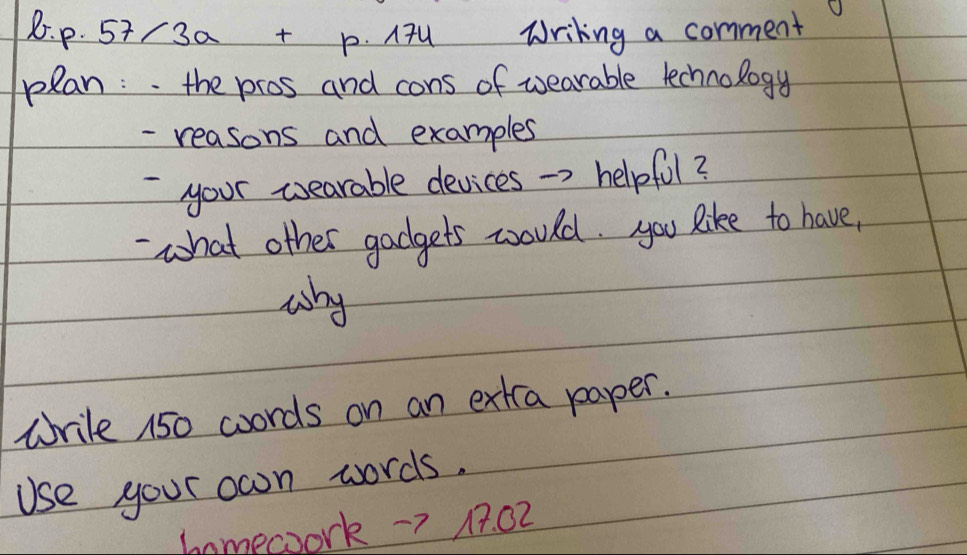 b.p. 57/3a + p. 174 Writing a comment
plan: - the pros and cons of wearable technology
- reasons and examples
- your wearable devices -> helpful?
- what other gadgets would. you like to have,
why
Write 150 words on an extra paper.
Use your own words.
homework -> 17.02